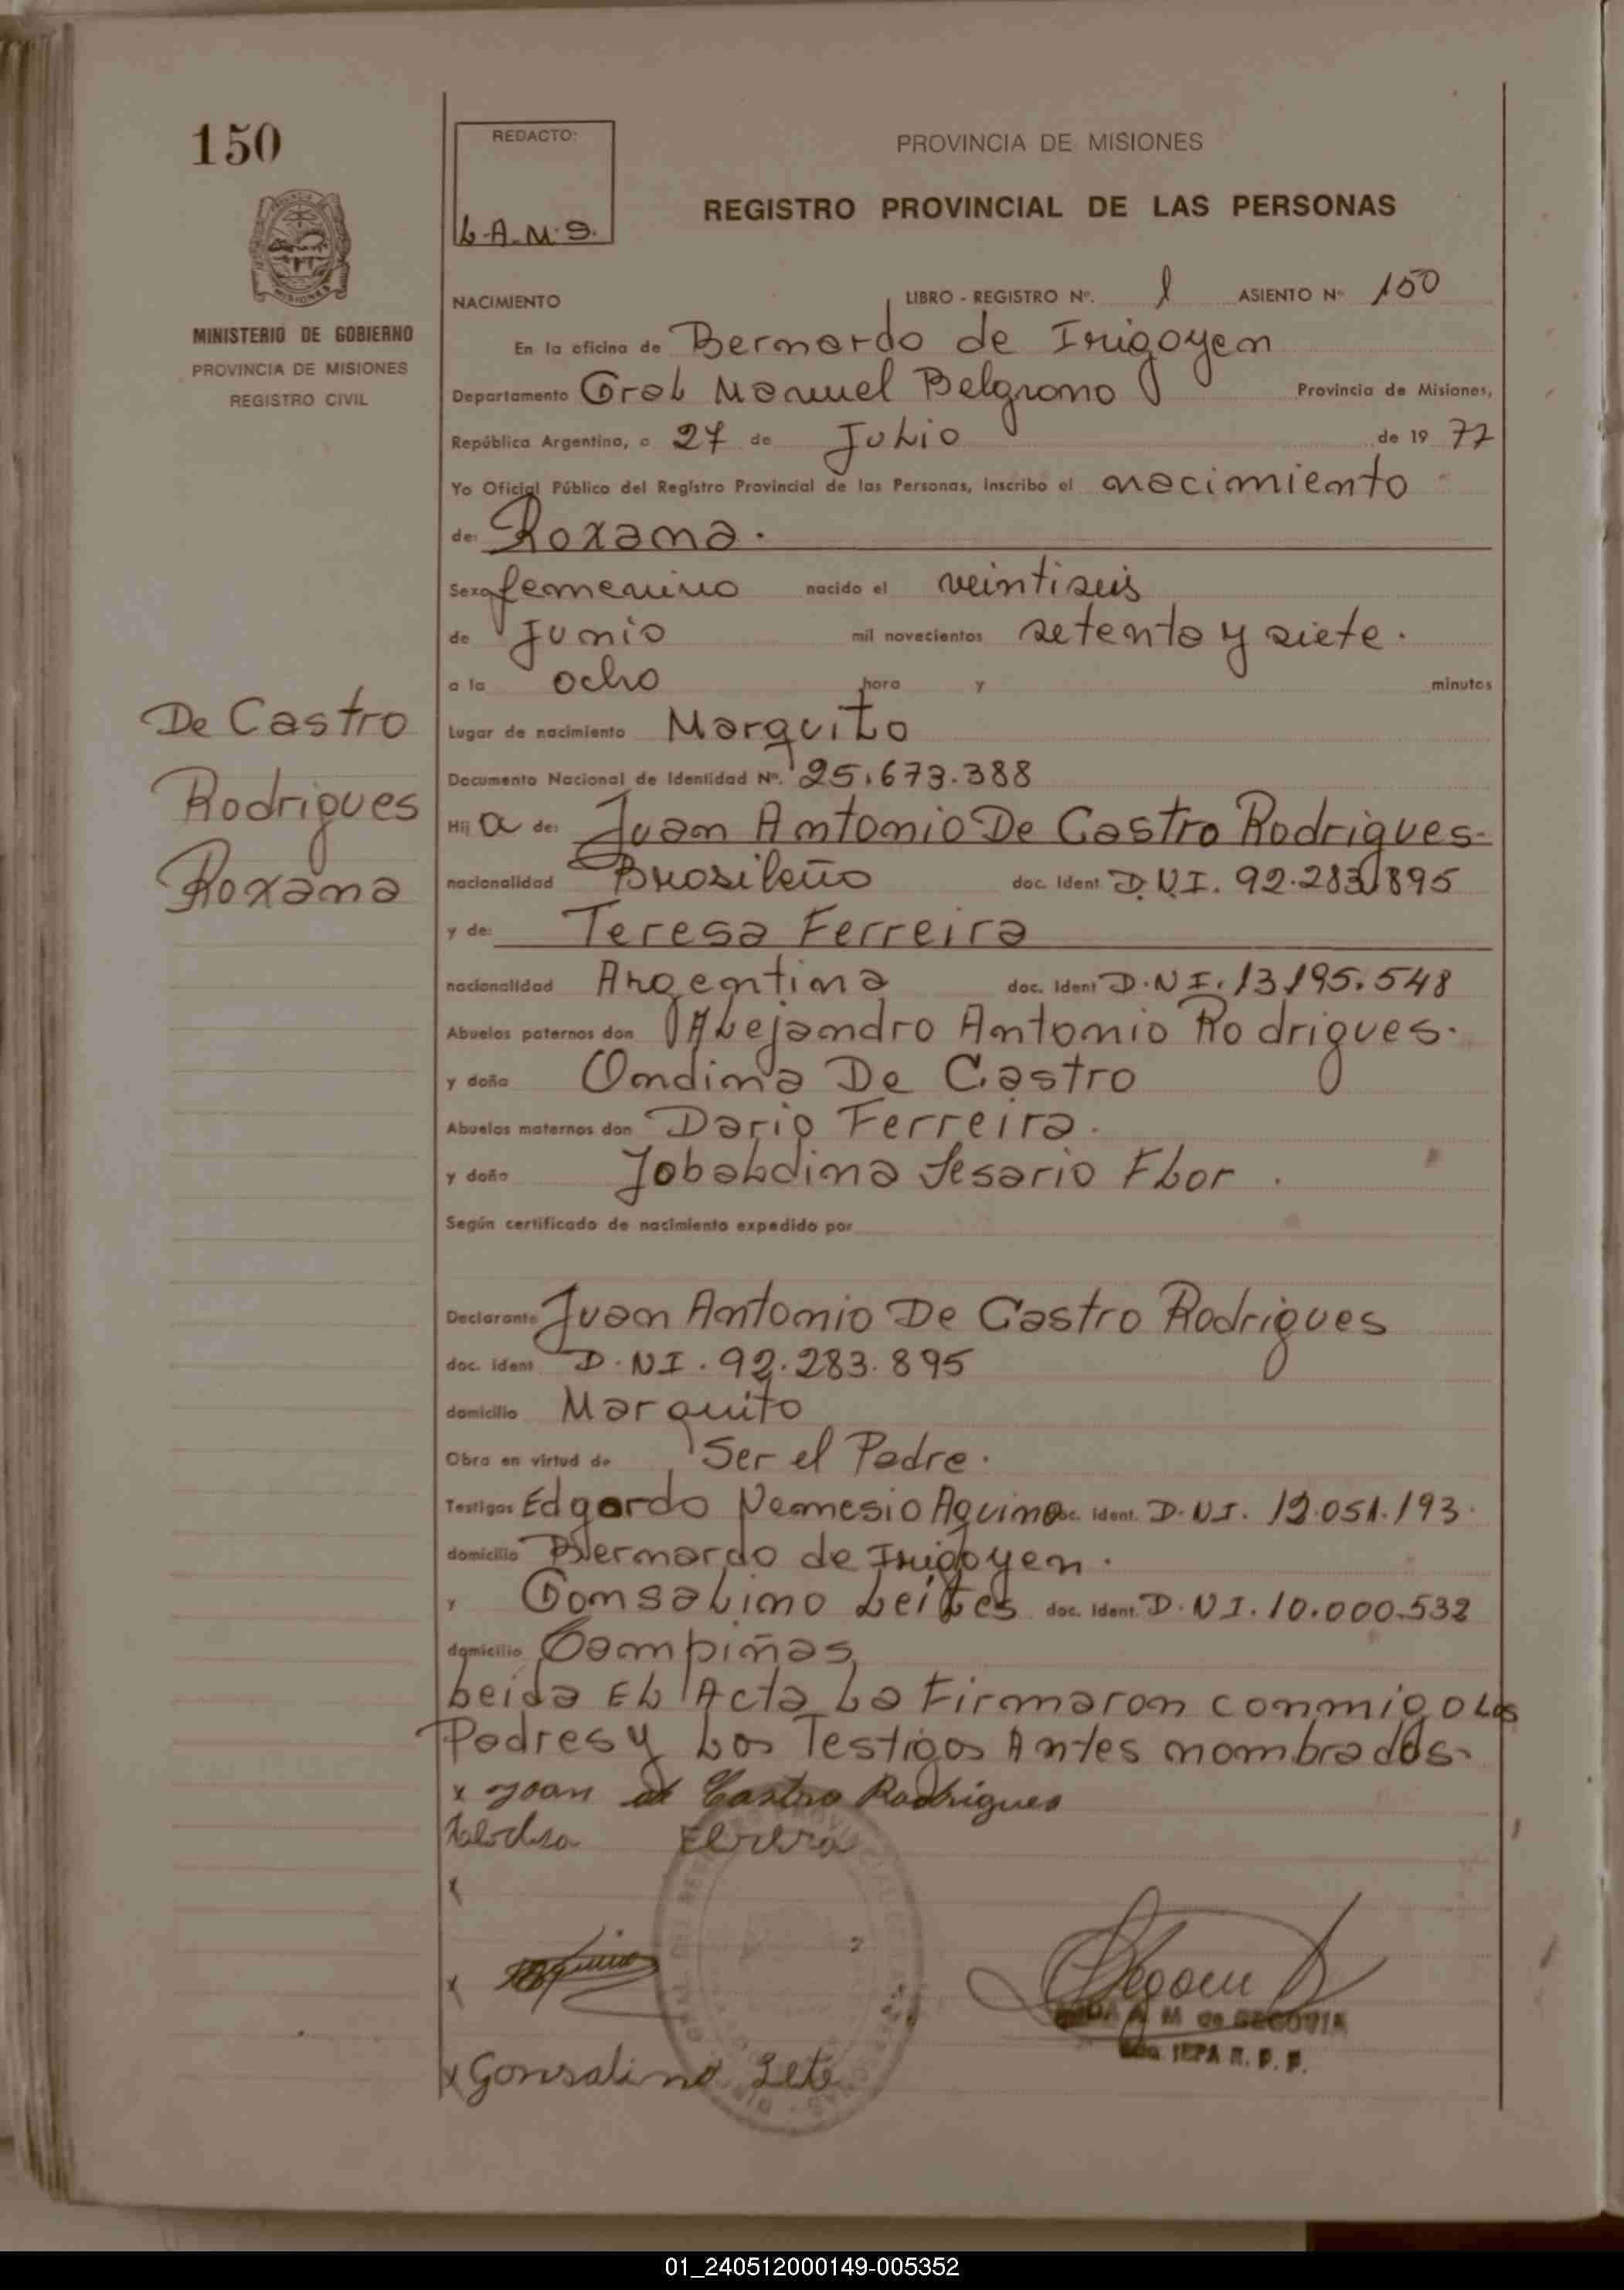 150
REDACTO:
L.A.M.S.
PROVINCIA DE MISIONES
REGISTRO PROVINCIAL DE LAS PERSONAS
MISIONES
MINISTERIO DE GOBIERNO
PROVINCIA DE MISIONES
REGISTRO CIVIL
NACIMIENTO LIBRO - REGISTRO Nº. 1 ASIENTO Nº 150
En la oficina de Bernardo de Irigoyen
Departamento Gral Manuel Belgrano Provincia de Misiones,
República Argentina, a 27 de Julio de 19 77
Yo Oficial Público del Registro Provincial de las Personas, inscribo el nacimiento
de: Roxana.
Sexo femenino nacido el veintiseis
de Junio mil novecientos setenta y siete.
a la ocho hora y minutos
Lugar de nacimiento Marquito
Documento Nacional de Identidad Nº. 25.673.388
De Castro
Rodrigues
Roxana
Hij a de: Juan Antonio De Castro Rodrigues-
nacionalidad Brasileño doc. Ident D.N.I. 92.283.895
y de: Teresa Ferreira
nacionalidad Argentina doc. Ident D.N.I. 13.195.548
Abuelos paternos don Alejandro Antonio Rodrigues.
y doña Ondina De Castro
Abuelos maternos don Dario Ferreira.
y doña Jobaldina Sesario Flor.
Según certificado de nacimiento expedido por
Declarante Juan Antonio De Castro Rodrigues
doc. ident D.NI. 92.283.895
domicilio Marquito
Obra en virtud de Ser el Padre.
Testigos Edgardo Nemesio Aquino doc. ident. D.NI. 12.051.193.
domicilio Bernardo de Irigoyen.
y Gonsalino Leites doc. ident. D.NI. 10.000.532
domicilio Campiñas
Leida El Acta La Firmaron conmigo Los
Padres y Los Testigos Antes nombrados.
x Joan de Castro Rodrigues
x
x
x Gonsalino Lete
A. M de SEGOVIA
JEFA R. P. P.
01_240512000149-005352